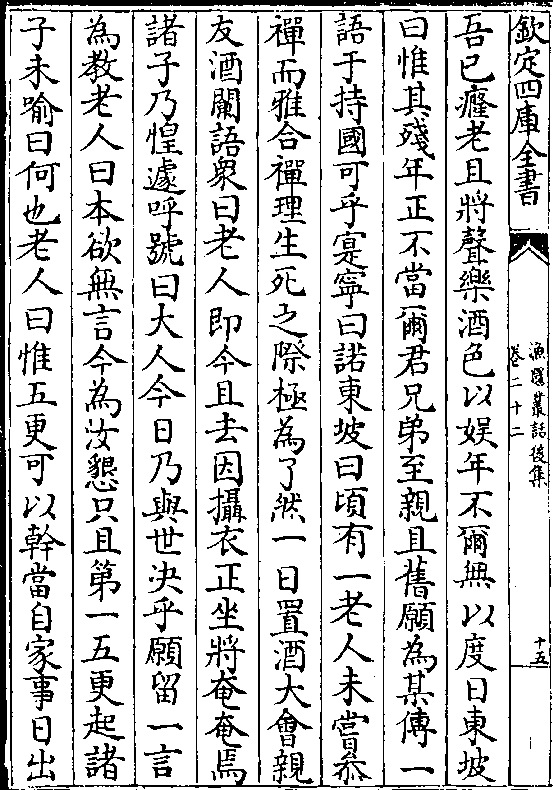 欽定四庫全書
漁隱叢話後集
卷二十二
十五
吾已癃老且將聲樂酒色以娱年不爾無以度日東坡
曰惟其殘年正不當爾君兄弟至親且舊願為某傳一
語于持國可乎寔寧曰諾東坡曰頃有一老人未嘗叅
禪而雅合禪理生死之際極為了然一日置酒大會親
友酒闌語衆曰老人即今且去因攝衣正坐將奄奄焉
諸子乃惶遽呼號曰大人今日乃與世决乎願留一言
為教老人曰本欲無言今為汝懇只且第一五更起諸
子未喻曰何也老人曰惟五更可以幹當自家事日出